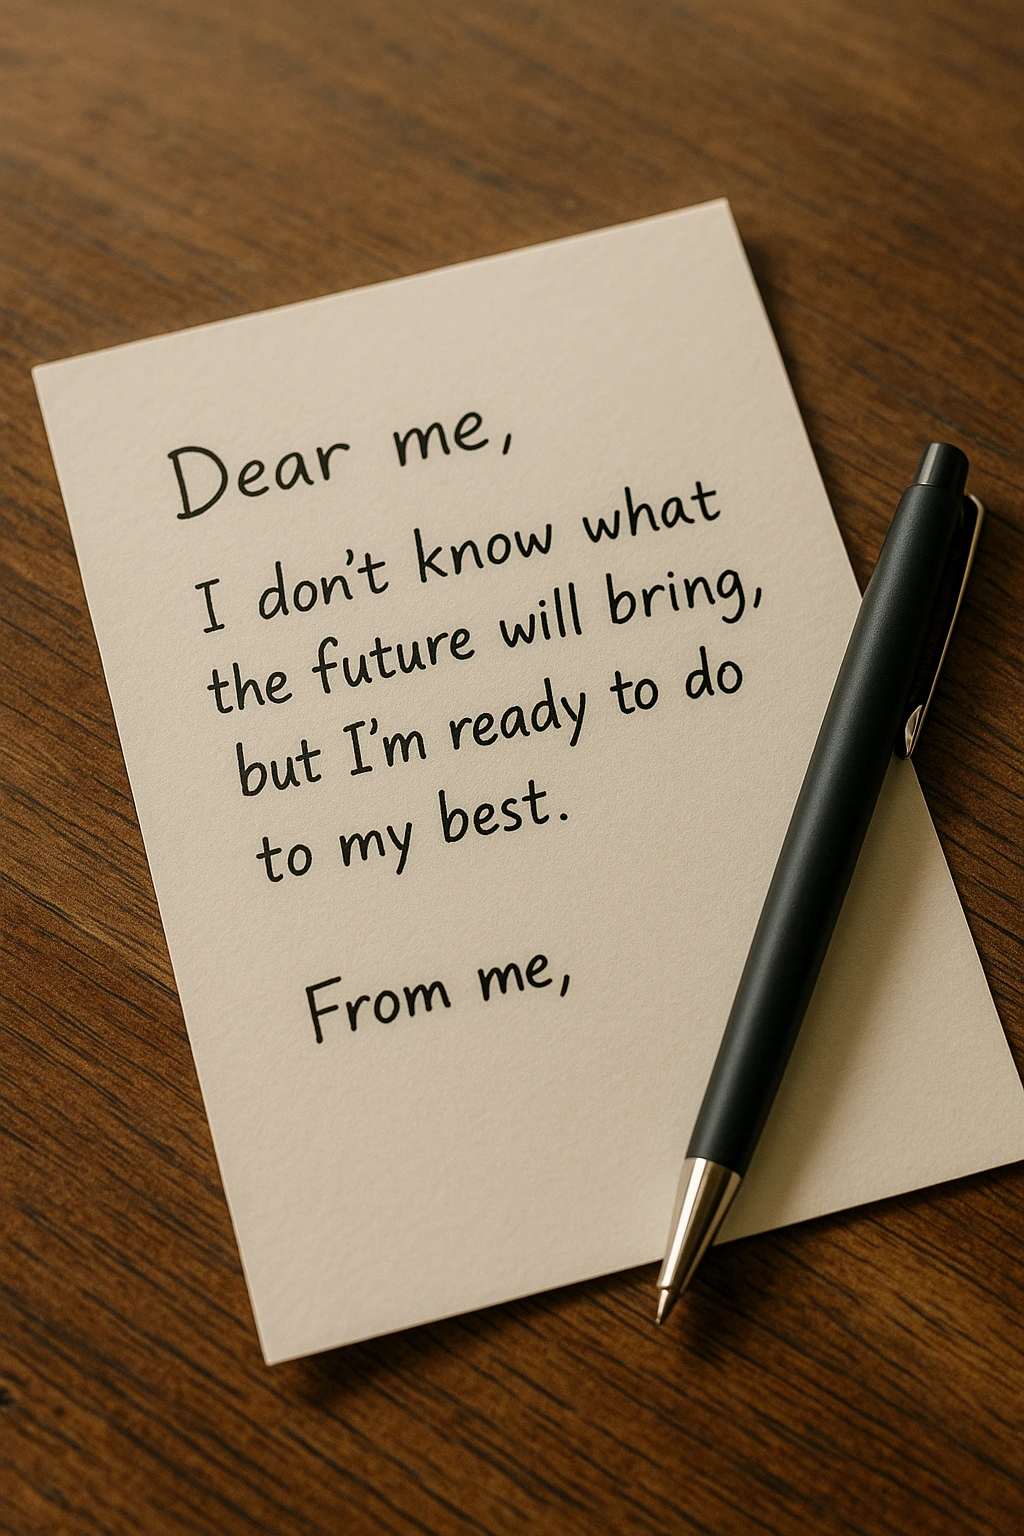 Dear me,
I don't know what
the future will bring,
but I'm ready to do
to my best.
From me,